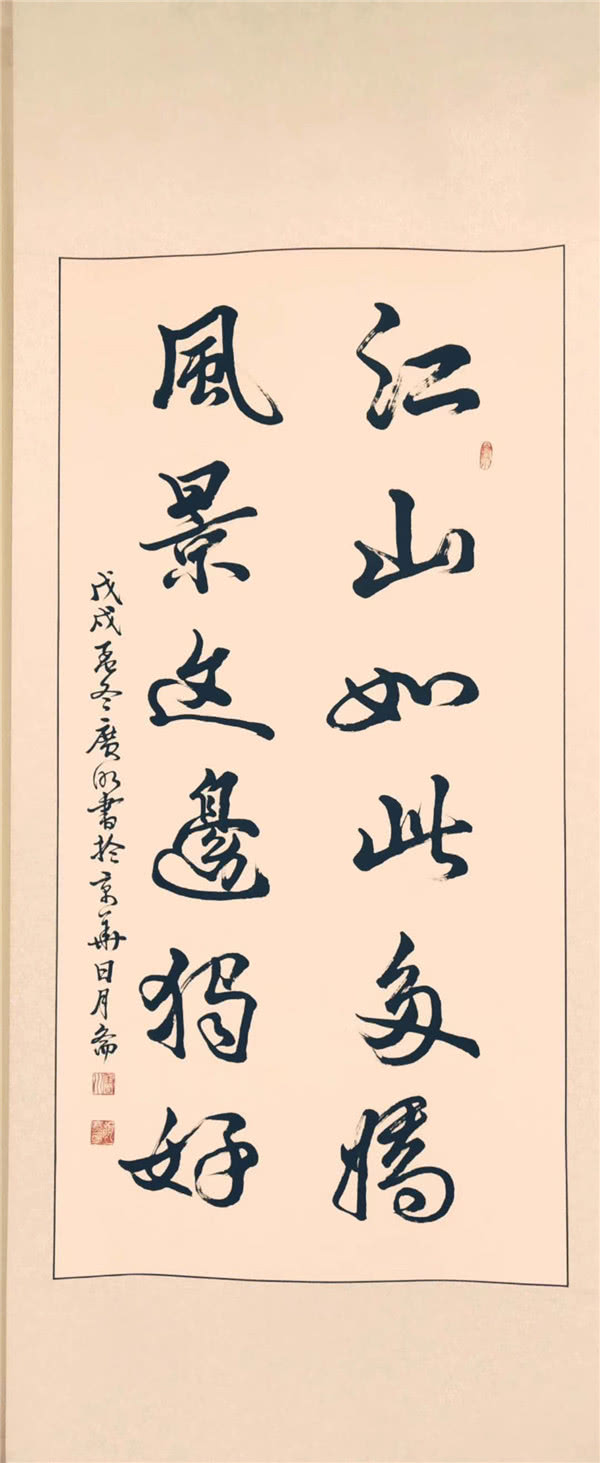 江山如此多嬌
風景这邊獨好
戊戌孟冬廣書於京華日月齋